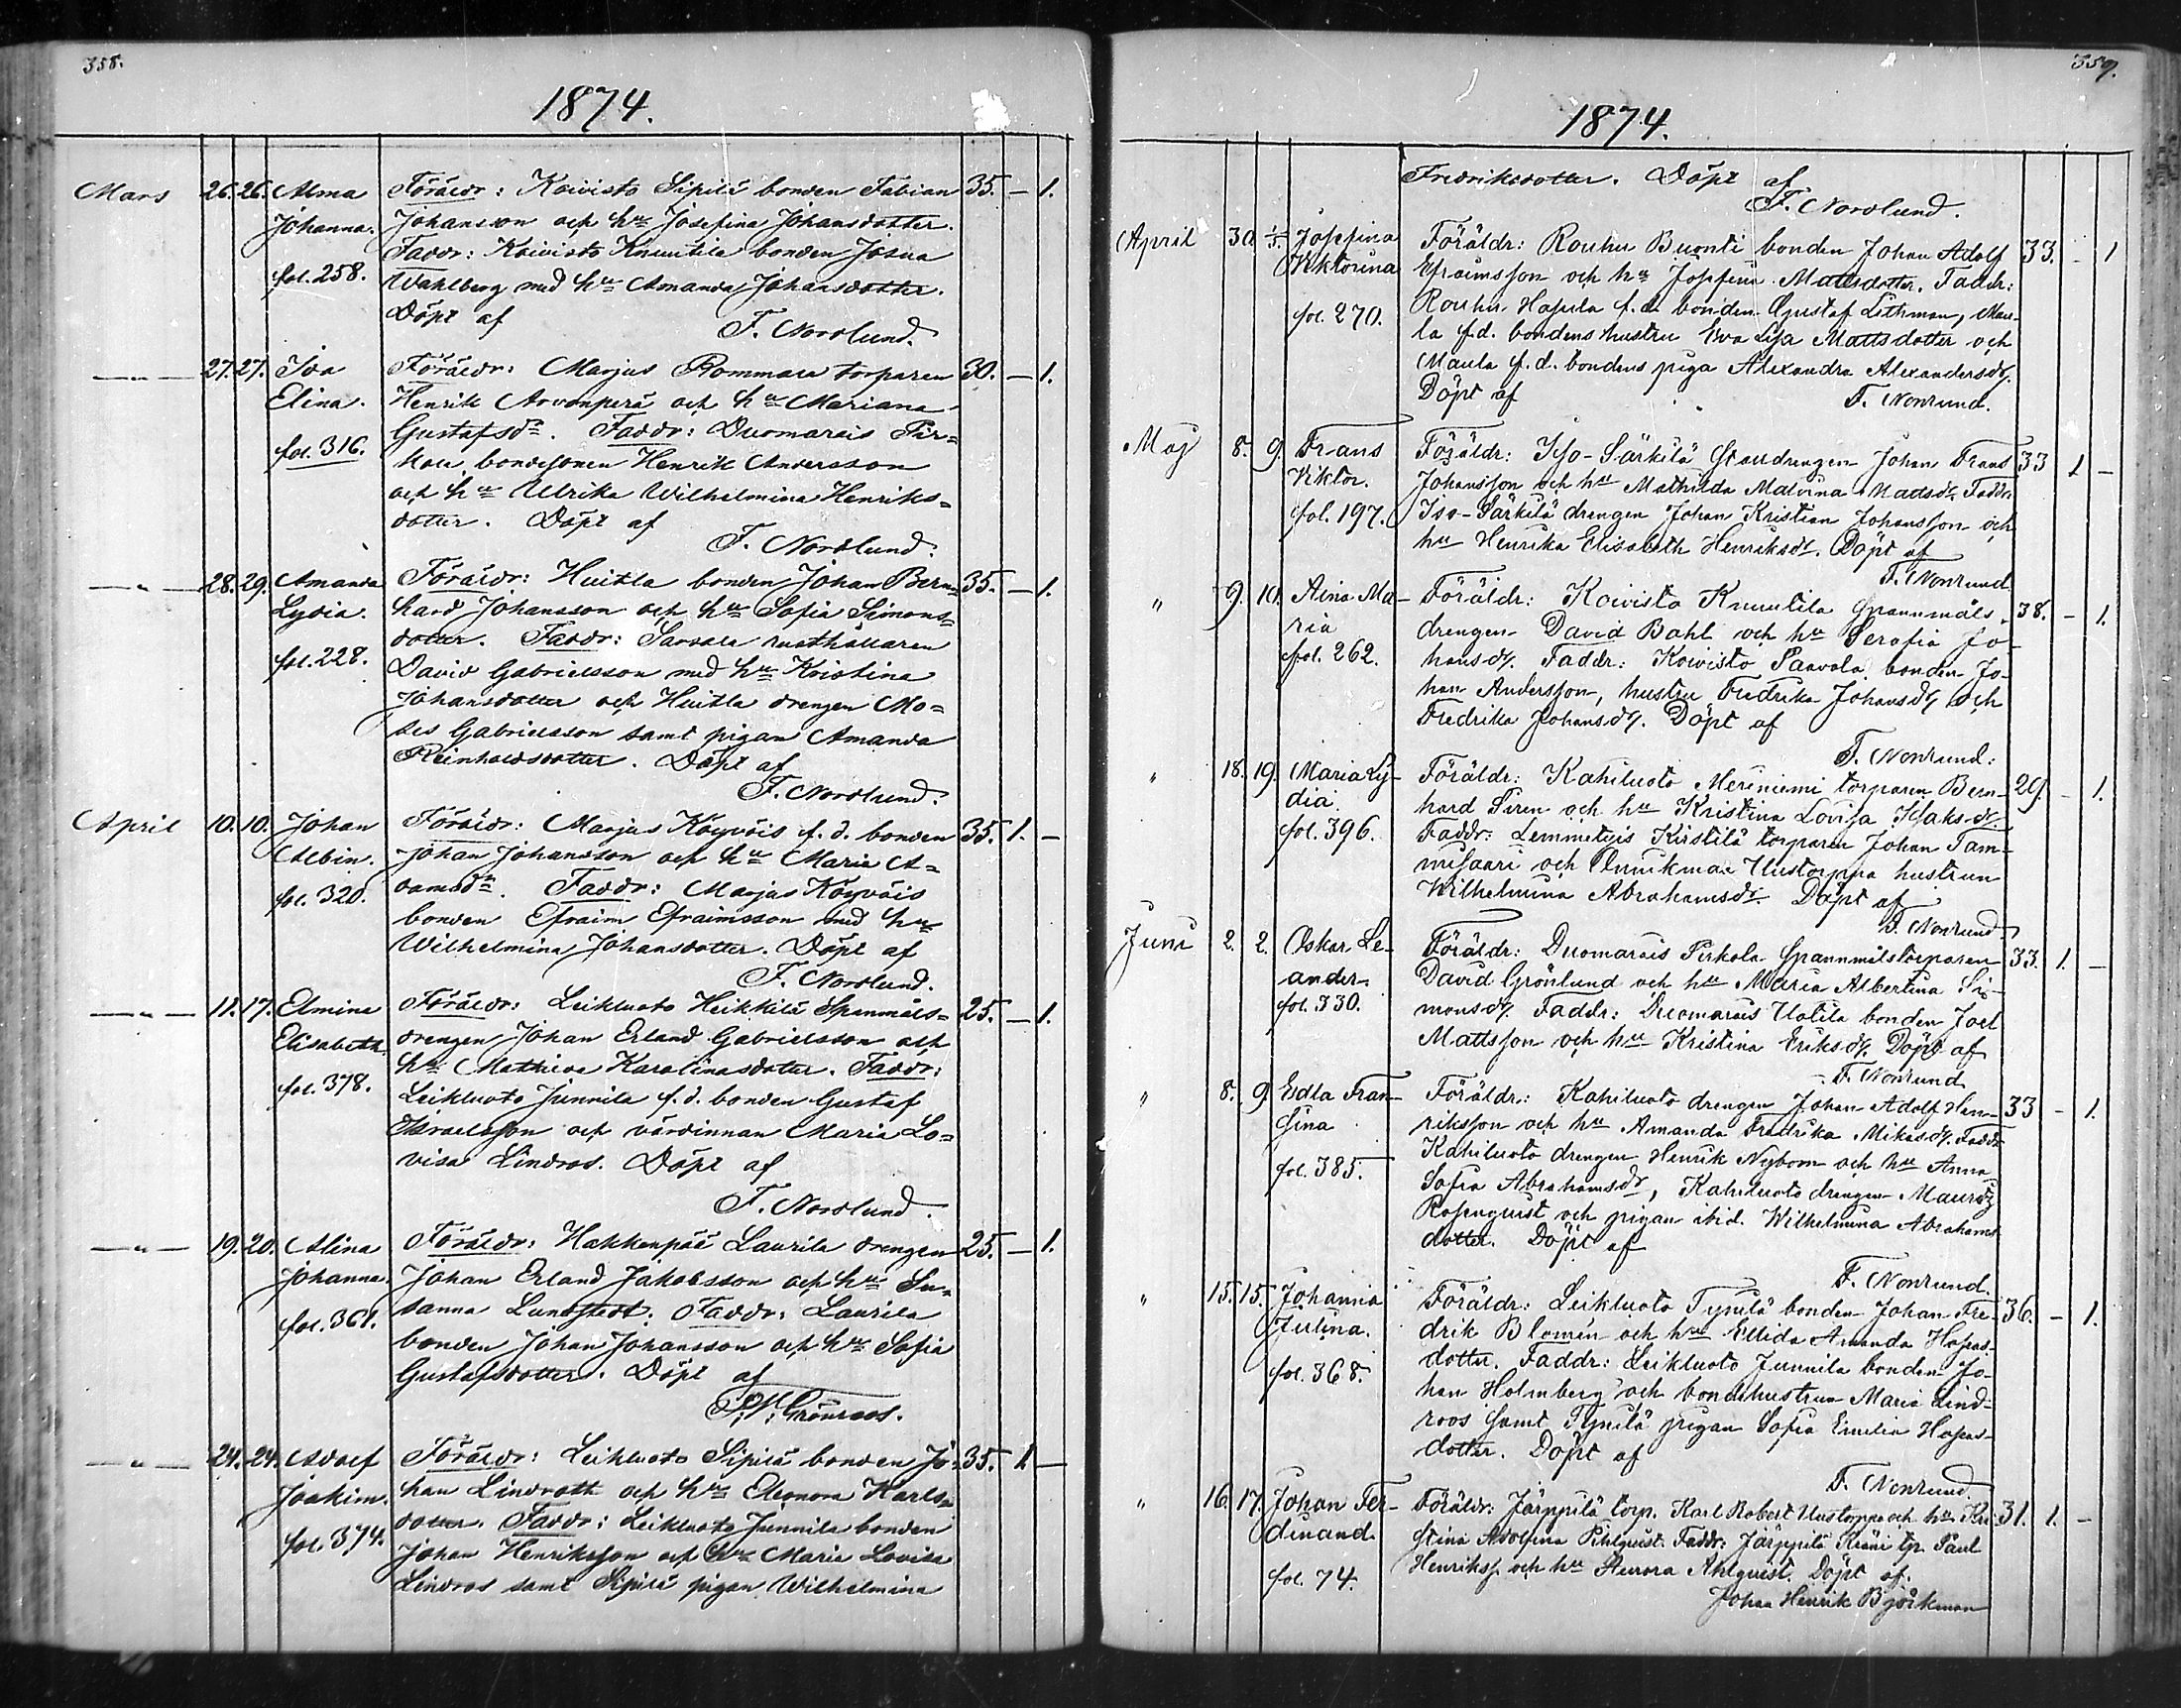 358.
1874.
Mars 26. 26. Alma Föräldr: Koivisto Sipilä bonden Fabian 35. — 1.
Johanna. Johansson och hu Josefina Johansdotter.
Faddr: Koivisto Knuutila bonden Josua
fol. 258. Wahlberg med hu Amanda Johansdotter.
Döpt af
F. Nordlund.
—"— 27. 27. Ida Föräldr: Marjus Rommara torparen 30. — 1.
Elina. Henrik Arvonperä och hu Mariana
Gustafsdr. Faddr: Duomarais Pir=
fol. 316. bondesonen Henrik Andersson
och hu Ulrika Wilhelmina Henriks=
dotter. Döpt af
F. Nordlund.
—"— 28. 29. Amanda Föräldr: Huitla bonden Johan Bern= 35. — 1.
Lydia. hard Johansson och hu Sofia Simons=
dotter. Faddr: Sarsala rusthållaren
fol. 228. David Gabrielsson med hu Kristina
Johansdotter och Huitla drengen Mo=
ses Gabrielsson samt pigan Amanda
Reinholdsdotter. Döpt af
F. Nordlund.
April 10. 10. Johan Föräldr: Marjus Köyvöis f. d. bonden 35. 1. —
Albin. Johan Johansson och hu Maria A=
damsdr. Faddr: Marjus Köyvöis
fol. 320. bonden Efraim Efraimsson med hu
Wilhelmina Johansdotter. Döpt af
F. Nordlund.
—"— 11. 17. Elmina Föräldr: Leikluoto Heikkilä Spanmåls= 25. — 1.
Elisabeth. drengen Johan Erland Gabrielsson och
hu Mathilda Karolinasdotter. Faddr:
fol. 378. Leikluoto Junnila f. d. bonden Gustaf
Israelsson och värdinnan Maria Lo=
visa Lindros. Döpt af
F. Nordlund.
—"— 19. 20. Alina Föräldr: Hakkenpää Laurila drengen 25. — 1.
Johanna. Johan Erland Jakobsson och hu Su=
sanna Lundstedt. Faddr: Laurila
fol. 361. bonden Johan Johansson och hu Sofia
Gustafsdotter. Döpt af
Grönroos.
—"— 24. 24. Adolf Föräldr: Leikluoto Sipilä bonden Jo= 35. 1. —
Joakim. han Lindroth och hu Eleonora Karls=
dotter. Faddr: Leikluoto Junnila bonden
fol. 374. Johan Henriksson och hu Maria Lovisa
Lindros samt Sipilä pigan Wilhelmina
359.
1874.
Fredriksdotter. Döpt af
F. Nordlund.
April 30. 1/5. Josefina Föräldr: Rouhu Buonti bonden Johan Adolf 33. - 1
Viktorina Efraimsson och hu Josefina Mattsdotter. Faddr:
fol. 270. Rouhu Hapula f. d. bonden Gustaf Lithman, Mau-
la f.d. bondens hustru Eva Lisa Mattsdotter och
Maula f. d. bondens piga Alexandra Alexandersdr.
Döpt af F. Nordlund.
Maj 8. 9. Frans Föräldr: Iso-Särkilä Stalldrengen Johan Frans 33 1 -
Viktor. Johansson och hu Mathilda Malvina Matsdr. Faddr:
fol. 197. Iso-Särkilä drengen Johan Kristian Johansson och
hu Henrika Elisabeth Henriksdr. Döpt af
F. Nordlund
" 9. 10. Aina Ma- Föräldr: Koivisto Knuutila Spannmåls- 38. - 1.
ria drengen David Bahl och hu Serafia Jo-
fol. 262. hansdr. Faddr: Koivisto Paavola bonden Jo-
han Andersson, hustru Fredrika Johansdr, och
Fredrika Johansdr. Döpt af
F. Nordlund.
" 18. 19. Maria Ly- Föräldr: Kahiluoto Meriniemi torparen Bern- 29. - 1.
dia. hard Siren och hu Kristina Lovisa Isaksdr.
fol. 396. Faddr: Lemmetyis Kirstilä torparen Johan Tam-
misaari och Uustorppa hustrun
Wilhelmina Abrahamsdr. Döpt af
F. Nordlund
Juni 2. 2. Oskar Le- Föräldr: Duomarais Pirkola Spannmålstorparen 33. 1. -
ander. David Grönlund och hu Maria Albertina Si-
fol. 330. monsdr. Faddr: Duomarais Uotila bonden Joel
Mattsson och hu Kristina Eriksdr. Döpt af
F. Nordlund
" 8. 9. Edla Fran- Föräldr: Kahiluoto drengen Johan Adolf Hen- 33 - 1.
sina riksson och hu Amanda Fredrika Mikasdr. Faddr:
fol. 385. Kahiluoto drengen Henrik Nybom och hu Anna
Sofia Abrahamsdr, Kahiluoto drengen Mauritz
Rosenquist och pigan ibid. Wilhelmina Abrahams
dotter. Döpt af
F. Nordlund.
" 15. 15. Johanna Föräldr: Leikluoto Tynilä bonden Johan Fre- 36. - 1.
Julina. drik Blomén och hu Ellida Amanda Hopas-
fol. 368. dotter. Faddr: Leikluoto Junnila bonden Jo-
han Holmberg och bondehustrun Maria Lind-
roos samt Tynilä pigan Sofia Emelia Hopas-
dotter. Döpt af
F. Nordlund
" 16. 17. Johan Fer- Föräldr: Järppilä torp. Karl Robert Uustorppa och hu Kri- 31. 1. -
dinand. stina Adolfina Pihlquist. Faddr: Järppilä tp. Paul
fol. 74. Henrikss. och hu Aurora Ahlquist. Döpt af.
Johan Henrik Björkman